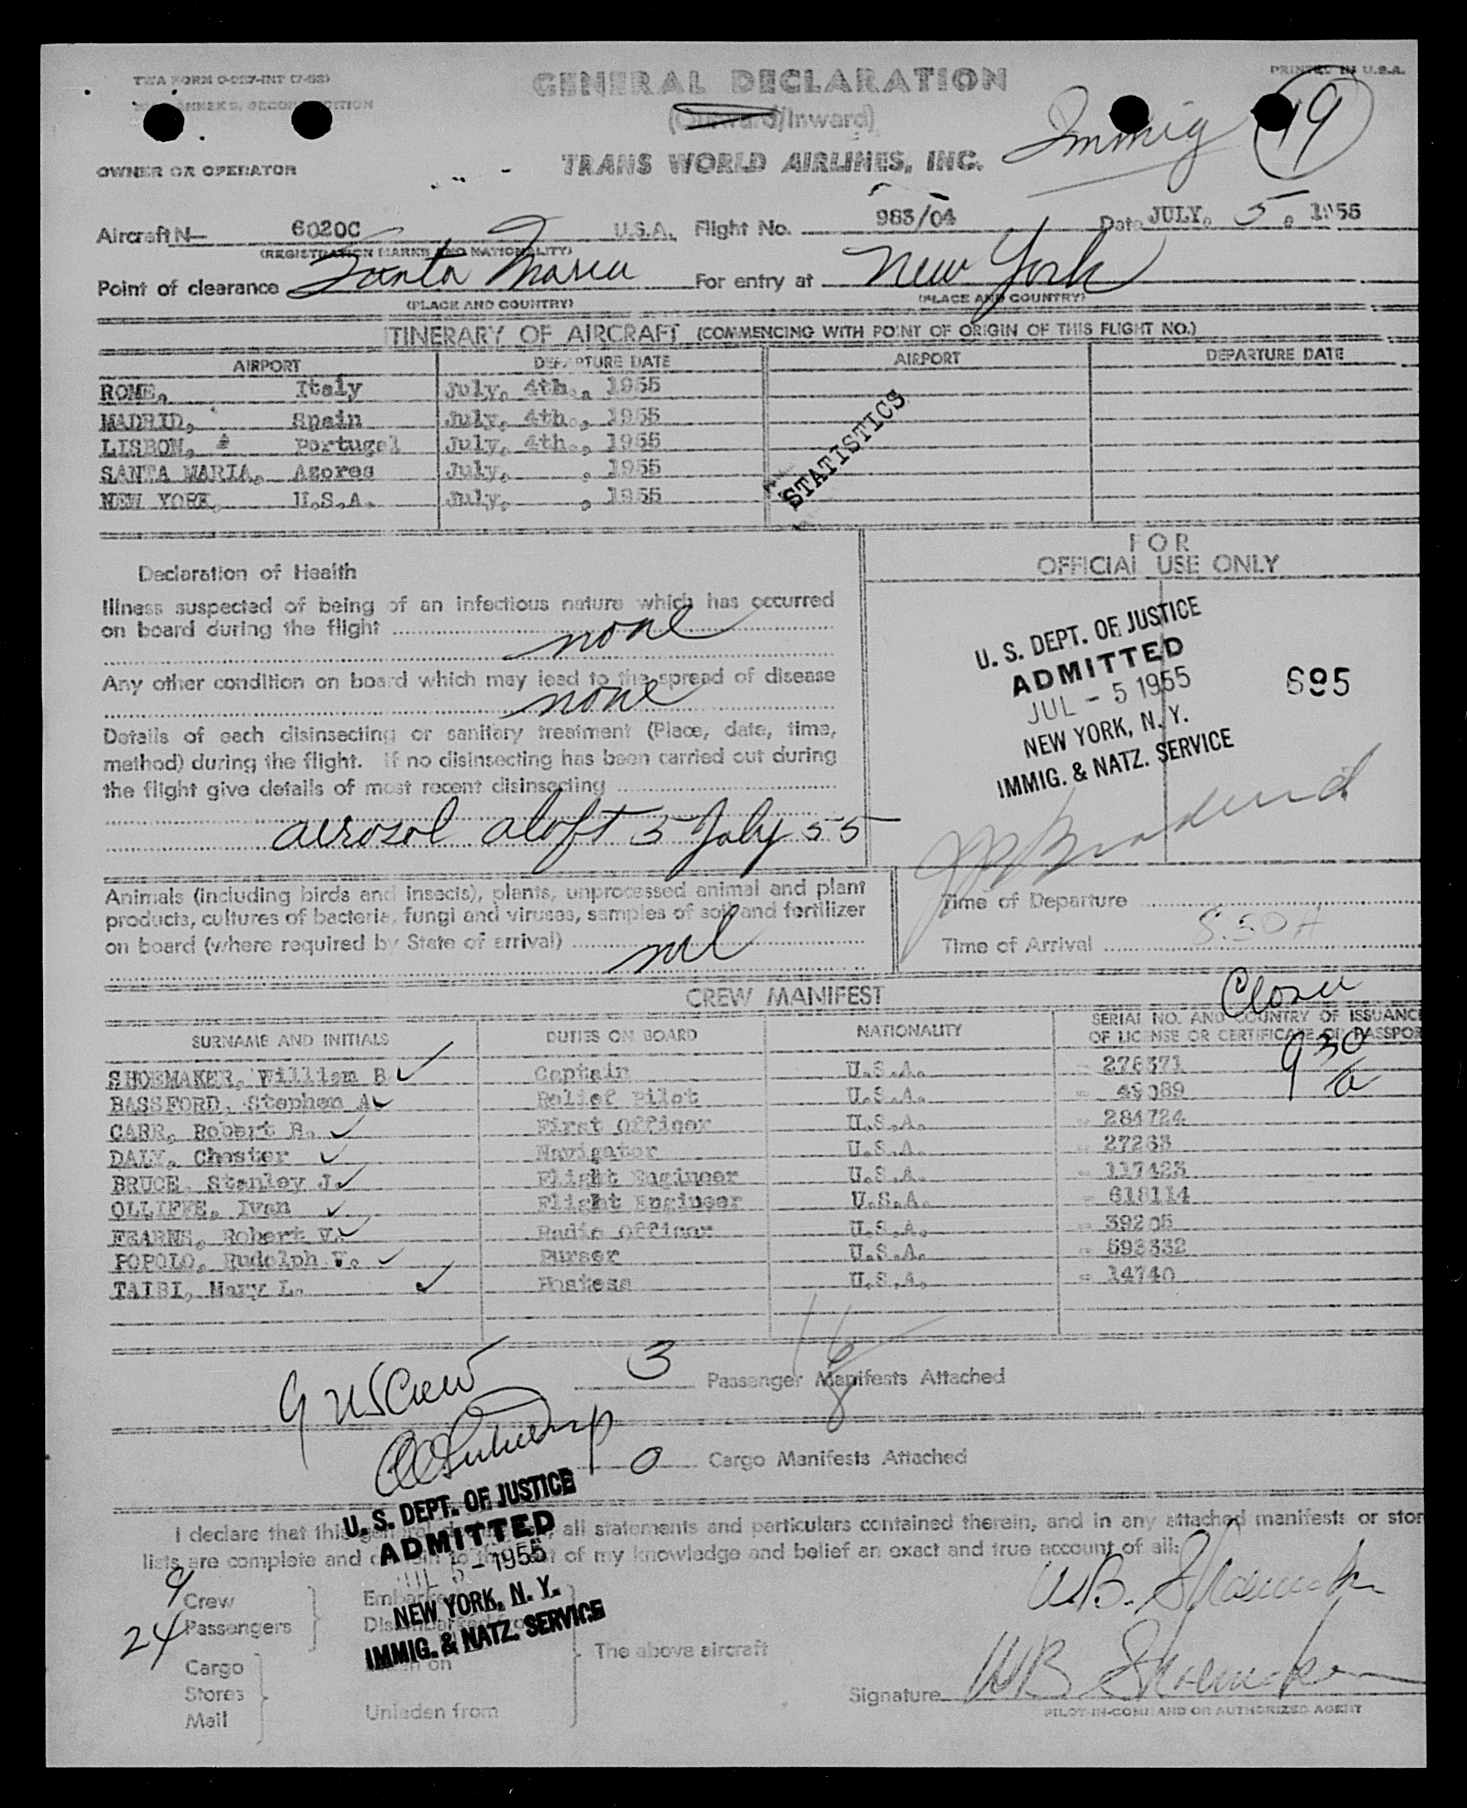 TWA FORM
PRINTED IN U.S.A.
GENERAL DECLARATION
(Outward/Inward)
Immig 19
TRANS WORLD AIRLINES, INC.
OWNER OR OPERATOR
Aircraft N— 6020C U.S.A. Flight No. 983/04 Date JULY. 5. 1955
(REGISTRATION MARKS AND NATIONALITY)
Point of clearance Santa Maria For entry at New York
(PLACE AND COUNTRY) (PLACE AND COUNTRY)
ITINERARY OF AIRCRAFT (COMMENCING WITH POINT OF ORIGIN OF THIS FLIGHT NO.)
AIRPORT DEPARTURE DATE AIRPORT DEPARTURE DATE
ROME, Italy July, 4th., 1955
MADRID, Spain July, 4th., 1955
LISBON, Portugal July, 4th., 1955
SANTA MARIA, Azores July, , 1955
NEW YORK, U.S.A. July, , 1955
STATISTICS
FOR
OFFICIAL USE ONLY
Declaration of Health
Illness suspected of being of an infectious nature which has occurred
on board during the flight none
Any other condition on board which may lead to the spread of disease
none
Details of each disinsecting or sanitary treatment (Place, date, time,
method) during the flight. If no disinsecting has been carried out during
the flight give details of most recent disinsecting
aerosol aloft 5 July 55
U. S. DEPT. OF JUSTICE
ADMITTED
JUL - 5 1955
NEW YORK, N. Y.
IMMIG. & NATZ. SERVICE
695
Animals (including birds and insects), plants, unprocessed animal and plant
products, cultures of bacteria, fungi and viruses, samples of soil and fertilizer
on board (where required by State of arrival) nil
Time of Departure
Time of Arrival
CREW MANIFEST
SURNAME AND INITIALS DUTIES ON BOARD NATIONALITY SERIAL NO. AND COUNTRY OF ISSUANCE
OF LICENSE OR CERTIFICATE OR PASSPOR
SHOEMAKER, William B Captain U.S.A. 276371
BASSFORD, Stephen A Relief Pilot U.S.A. 49089
CARR, Robert B. First Officer U.S.A. 284724
DALY, Chester Navigator U.S.A. 27263
BRUCE, Stanley J. Flight Engineer U.S.A. 117423
OLLIFFE, Ivan Flight Engineer U.S.A. 618114
FEARNS, Robert V. Radio Officer U.S.A. 39205
POPOLO, Rudolph V. Purser U.S.A. 593332
TAIBI, Mary L. Hostess U.S.A. 14740
9 US Crew
3 Passenger Manifests Attached
0 Cargo Manifests Attached
U. S. DEPT. OF JUSTICE
ADMITTED
JUL 5 - 1955
NEW YORK, N. Y.
IMMIG. & NATZ. SERVICE
I declare that this general all statements and particulars contained therein, and in any attached manifests or stor
lists are complete and of my knowledge and belief an exact and true account of all:
W.B. Shoemaker
9 Crew
24 Passengers
Cargo
Stores
Mail
Unladen from
The above aircraft
Signature WB Shoemaker
PILOT-IN-COMMAND OR AUTHORIZED AGENT